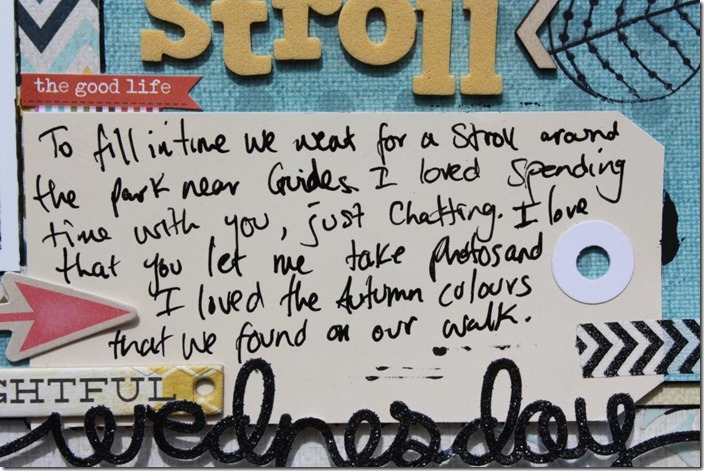 stroll
the good life
To fill in time we went for a Stroll around
the park near Guides. I loved Spending
time with you, just Chatting. I love
that you let me take photos and
I loved the Autumn colours
that we found on our walk.
GHTFUL
wednesday